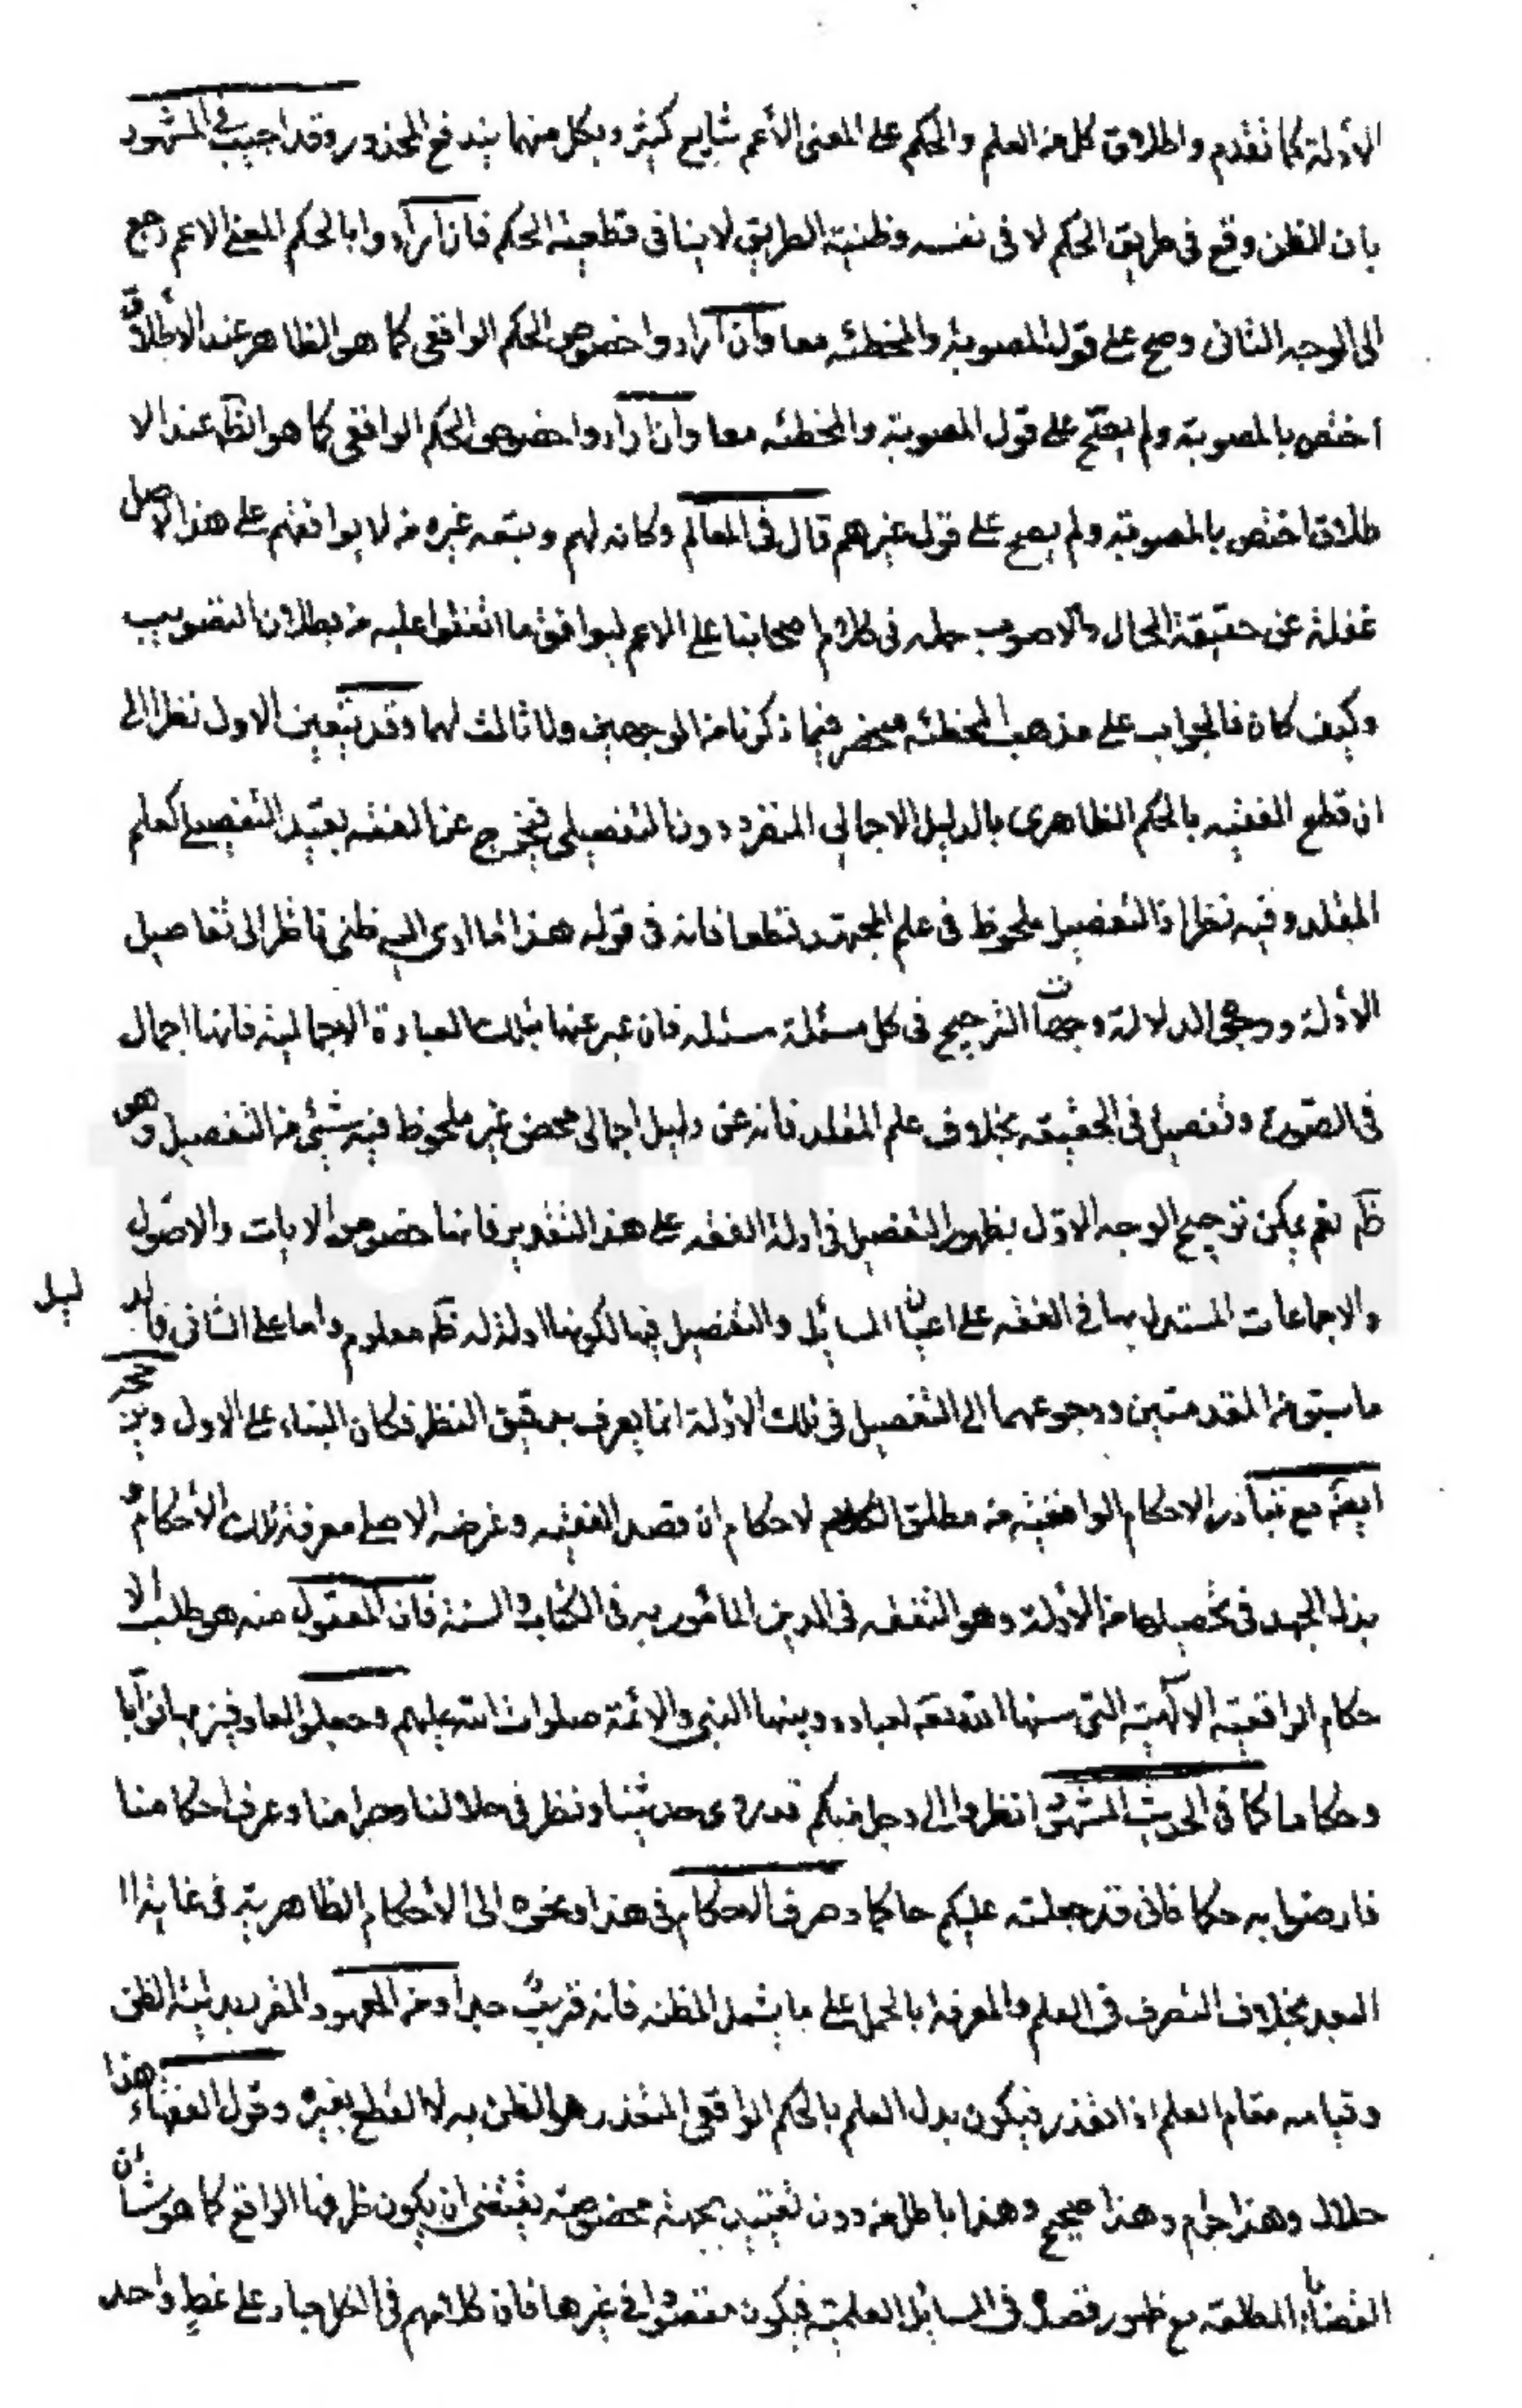 الأدلة كما تقدم واطلاق كل من العلم والحكم على المعنى الأعم شايع كثير وبكل منهما يندفع المحذور وقد اجيب في المشهور
بان الظن وقع فى طريق الحكم لا فى نفسه وظنية الطريق لا ينافى قطعية الحكم فان ارادوا بالحكم المعنى الاعم رجع
الى الوجه الثانى وصح على قول المصوبة والمخطئه معا وان ارادوا خصوص الحكم الواقعى كما هو الظاهر عند الاطلاق
اختص بالمصوبة ولم يصح على قول المصوبة والمخطئه معا وان ارادوا خصوص الحكم الواقعى كما هو الظم عند الا
طلاق اختص بالمصوبة ولم يصح على قول غيرهم قال فى المعالم وكانه لهم وتبعه غيره من لا يوافقهم على هذا الاصل
غفلة عن حقيقة الحال والاصوب حمله فى كلام اصحابنا على الاعم ليوافق ما اتفقوا عليه من بطلان التصويب
وكيف كان فالجواب على مذهب المخطئه منحصر فيما ذكرنا من الوجهين ولا ثالث لهما وقد يتعين الاول نظرا الى
ان قطع الفقيه بالحكم الظاهرى بالدليل الاجمالى المنفرد دون التفصيلى فيخرج عن الفقه بقيد التفصيلى كعلم
المقلد وفيه نظر اذ التفصيل ملحوظ فى علم المجتهد قطعا فانه فى قوله هذا ما ادى اليه ظنى ناظر الى تفاصيل
الأدلة ووجوه الدلالة وجهات الترجيح فى كل مسئلة مسئله فان عبر عنها بتلك العبارة الاجمالية فانها اجمال
فى الصورة وتفصيل فى الحقيقه بخلاف علم المقلد فانه عن دليل اجمالى محض غير ملحوظ فيه شيئى من التفصيل وهو
ظم نعم يمكن ترجيح الوجه الاول بظهور التفصيل فى ادلة الفقه على هذا التقدير فانها خصوص الايات والاصول
والاجماعات المستدل بها فى الفقه على اعيان المسائل والتفصيل فيها لكونها ادلة له ظم معلوم واما على الثانى فالد ليل
ما سبق من المقدمتين ورجوعهما الى التفصيل فى تلك الأدلة انما يعرف بدقيق النظر فكان البناء على الاول
ايضم مع تبادر الاحكام الواقعية من مطلق لاحكام ان قصد الفقيه وغرضه الاصلى معرفة تلك الأحكام و
بذل الجهد فى تحصيلها من الأدلة وهو التفقه فى الدين المأمور به فى الكتاب والسنة فان المعقول منه هو طلب الا
حكام الواقعية الالهية التى سنها الله تعم لعباده وبينها النبى والائمة صلوات الله عليهم وجعلوا العارفين بها نوابا
وحكاما كما فى الحديث المشهور انظروا الى رجل منكم قد روى حديثنا ونظر فى حلالنا وحرامنا وعرف احكامنا
فارضوا به حكما فانى قد جعلته عليكم حاكما وصرف الاحكام فى هذا ونحوه الى الأحكام الظاهرية فى غاية ا
لبعد بخلاف التصرف فى العلم والمعرفة بالحمل على ما يشمل المظنه فانه قريب جدا ومن المعهود المقرر بدلية الظن
وقيامه مقام العلم اذا تعذر فيكون بدل العلم بالحكم الواقعى المتعذر هو الظن به لا القطع بغيره وقول الفقهاء هذا
حلال وهذا حرام وهذا صحيح وهذا باطل من دون تقييد بجهة مخصوصة يقتضى ان يكون ظرفها الواقع كما هو شأن
القضايا المطلقة مع ظهور قصده فى المسائل العلمية فيكون مقصودا فى غيرها فان كلامهم فى الكل جار على نمط واحد